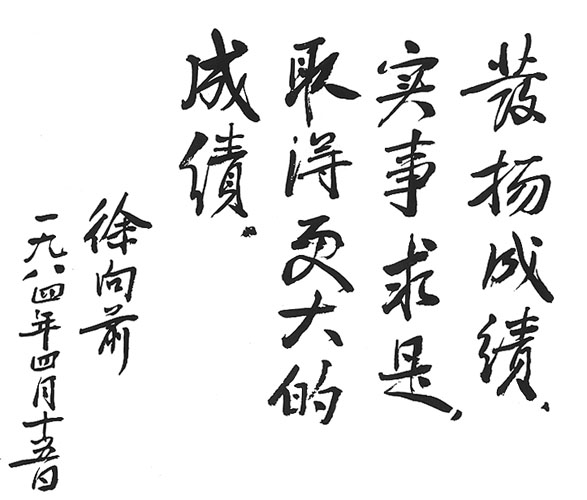 發扬成绩、
实事求是，
取得更大的
成绩.
徐向前
一九八四年四月十五日